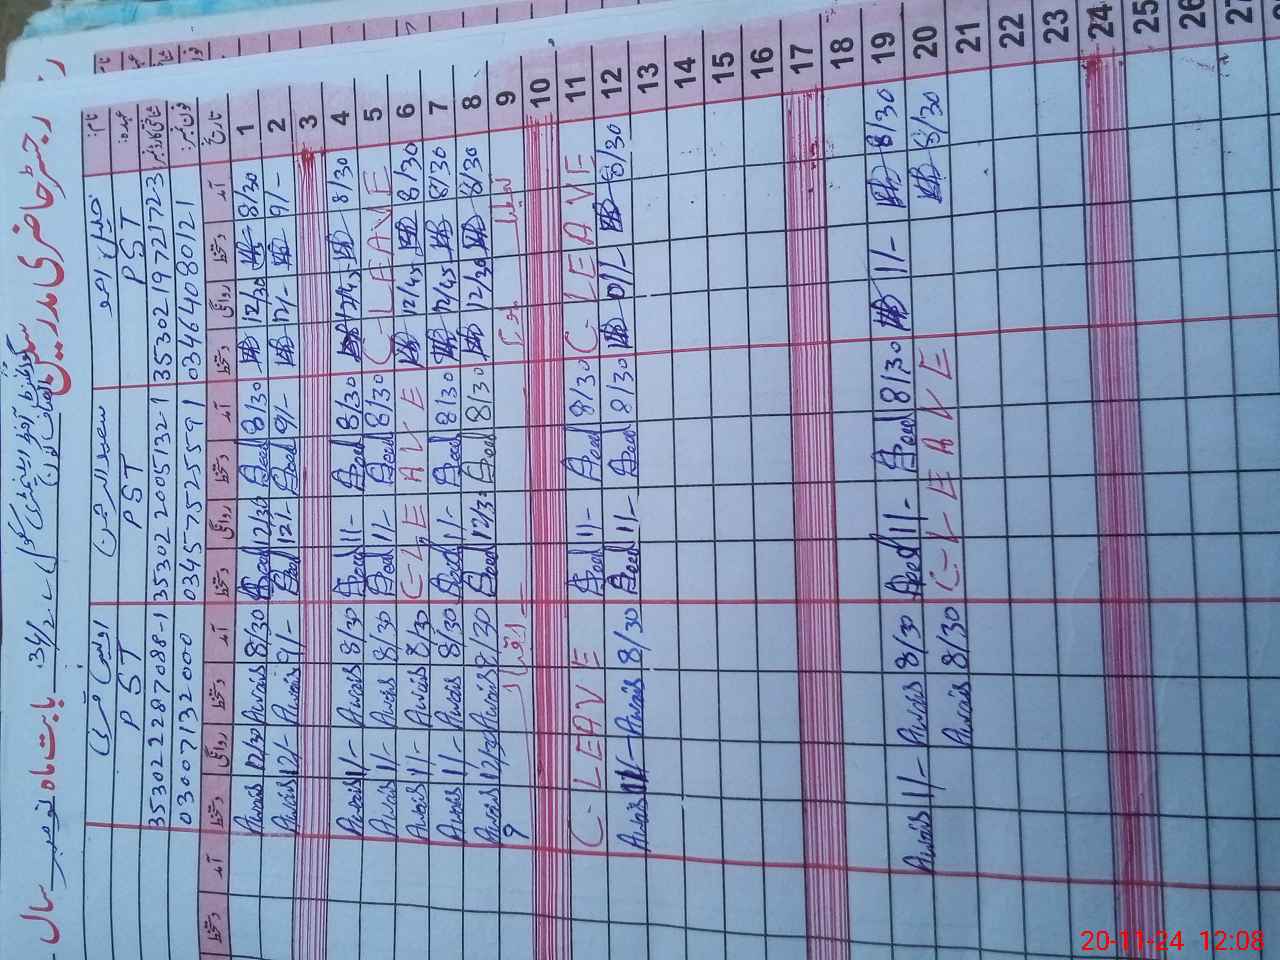 رجسٹر حاضری مدرسین
گورنمنٹ
بابت ماہ نومبر سال
نام:
عہدہ:
شناختی کارڈ نمبر
فون نمبر
PST
35302 1972172-3
0346 4080121
سعید الرحمن
PST
35302 2005132-1
0345 7525591
PST
35302 2287088-1
03007132000
تاریخ آمد دستخط روانگی دستخط آمد دستخط روانگی دستخط آمد دستخط روانگی دستخط آمد دستخط
1 8/30 12/30 8/30 Saeed 12/30 Saeed 8/30 Awais 12/30 Awais
2 9/- 12/- 9/- Saeed 12/- Saeed 9/- Awais 12/- Awais
3
4 8/30 12/45 8/30 Saeed 11/- Saeed 8/30 Awais 11/- Awais
5 C-LEAVE 8/30 Saeed 11/- Saeed 8/30 Awais 11/- Awais
6 8/30 12/45 C-LEAVE 8/30 Awais 11/- Awais
7 8/30 12/45 8/30 Saeed 11/- Saeed 8/30 Awais 11/- Awais
8 8/30 12/30 8/30 Saeed 12/30 Saeed 8/30 Awais 12/30 Awais
9 تعطیل 9
10
11 C-LEAVE 8/30 Saeed 11/- Saeed C-LEAVE
12 8/30 11/- 8/30 Saeed 11/- Saeed 8/30 Awais 11/- Awais
13
14
15
16
17
18
19 8/30 11/- 8/30 Saeed 11/- Saeed 8/30 Awais 11/- Awais
20 8/30 C-LEAVE 8/30 Awais
21
22
23
24
25
26
27
20-11-24 12:08